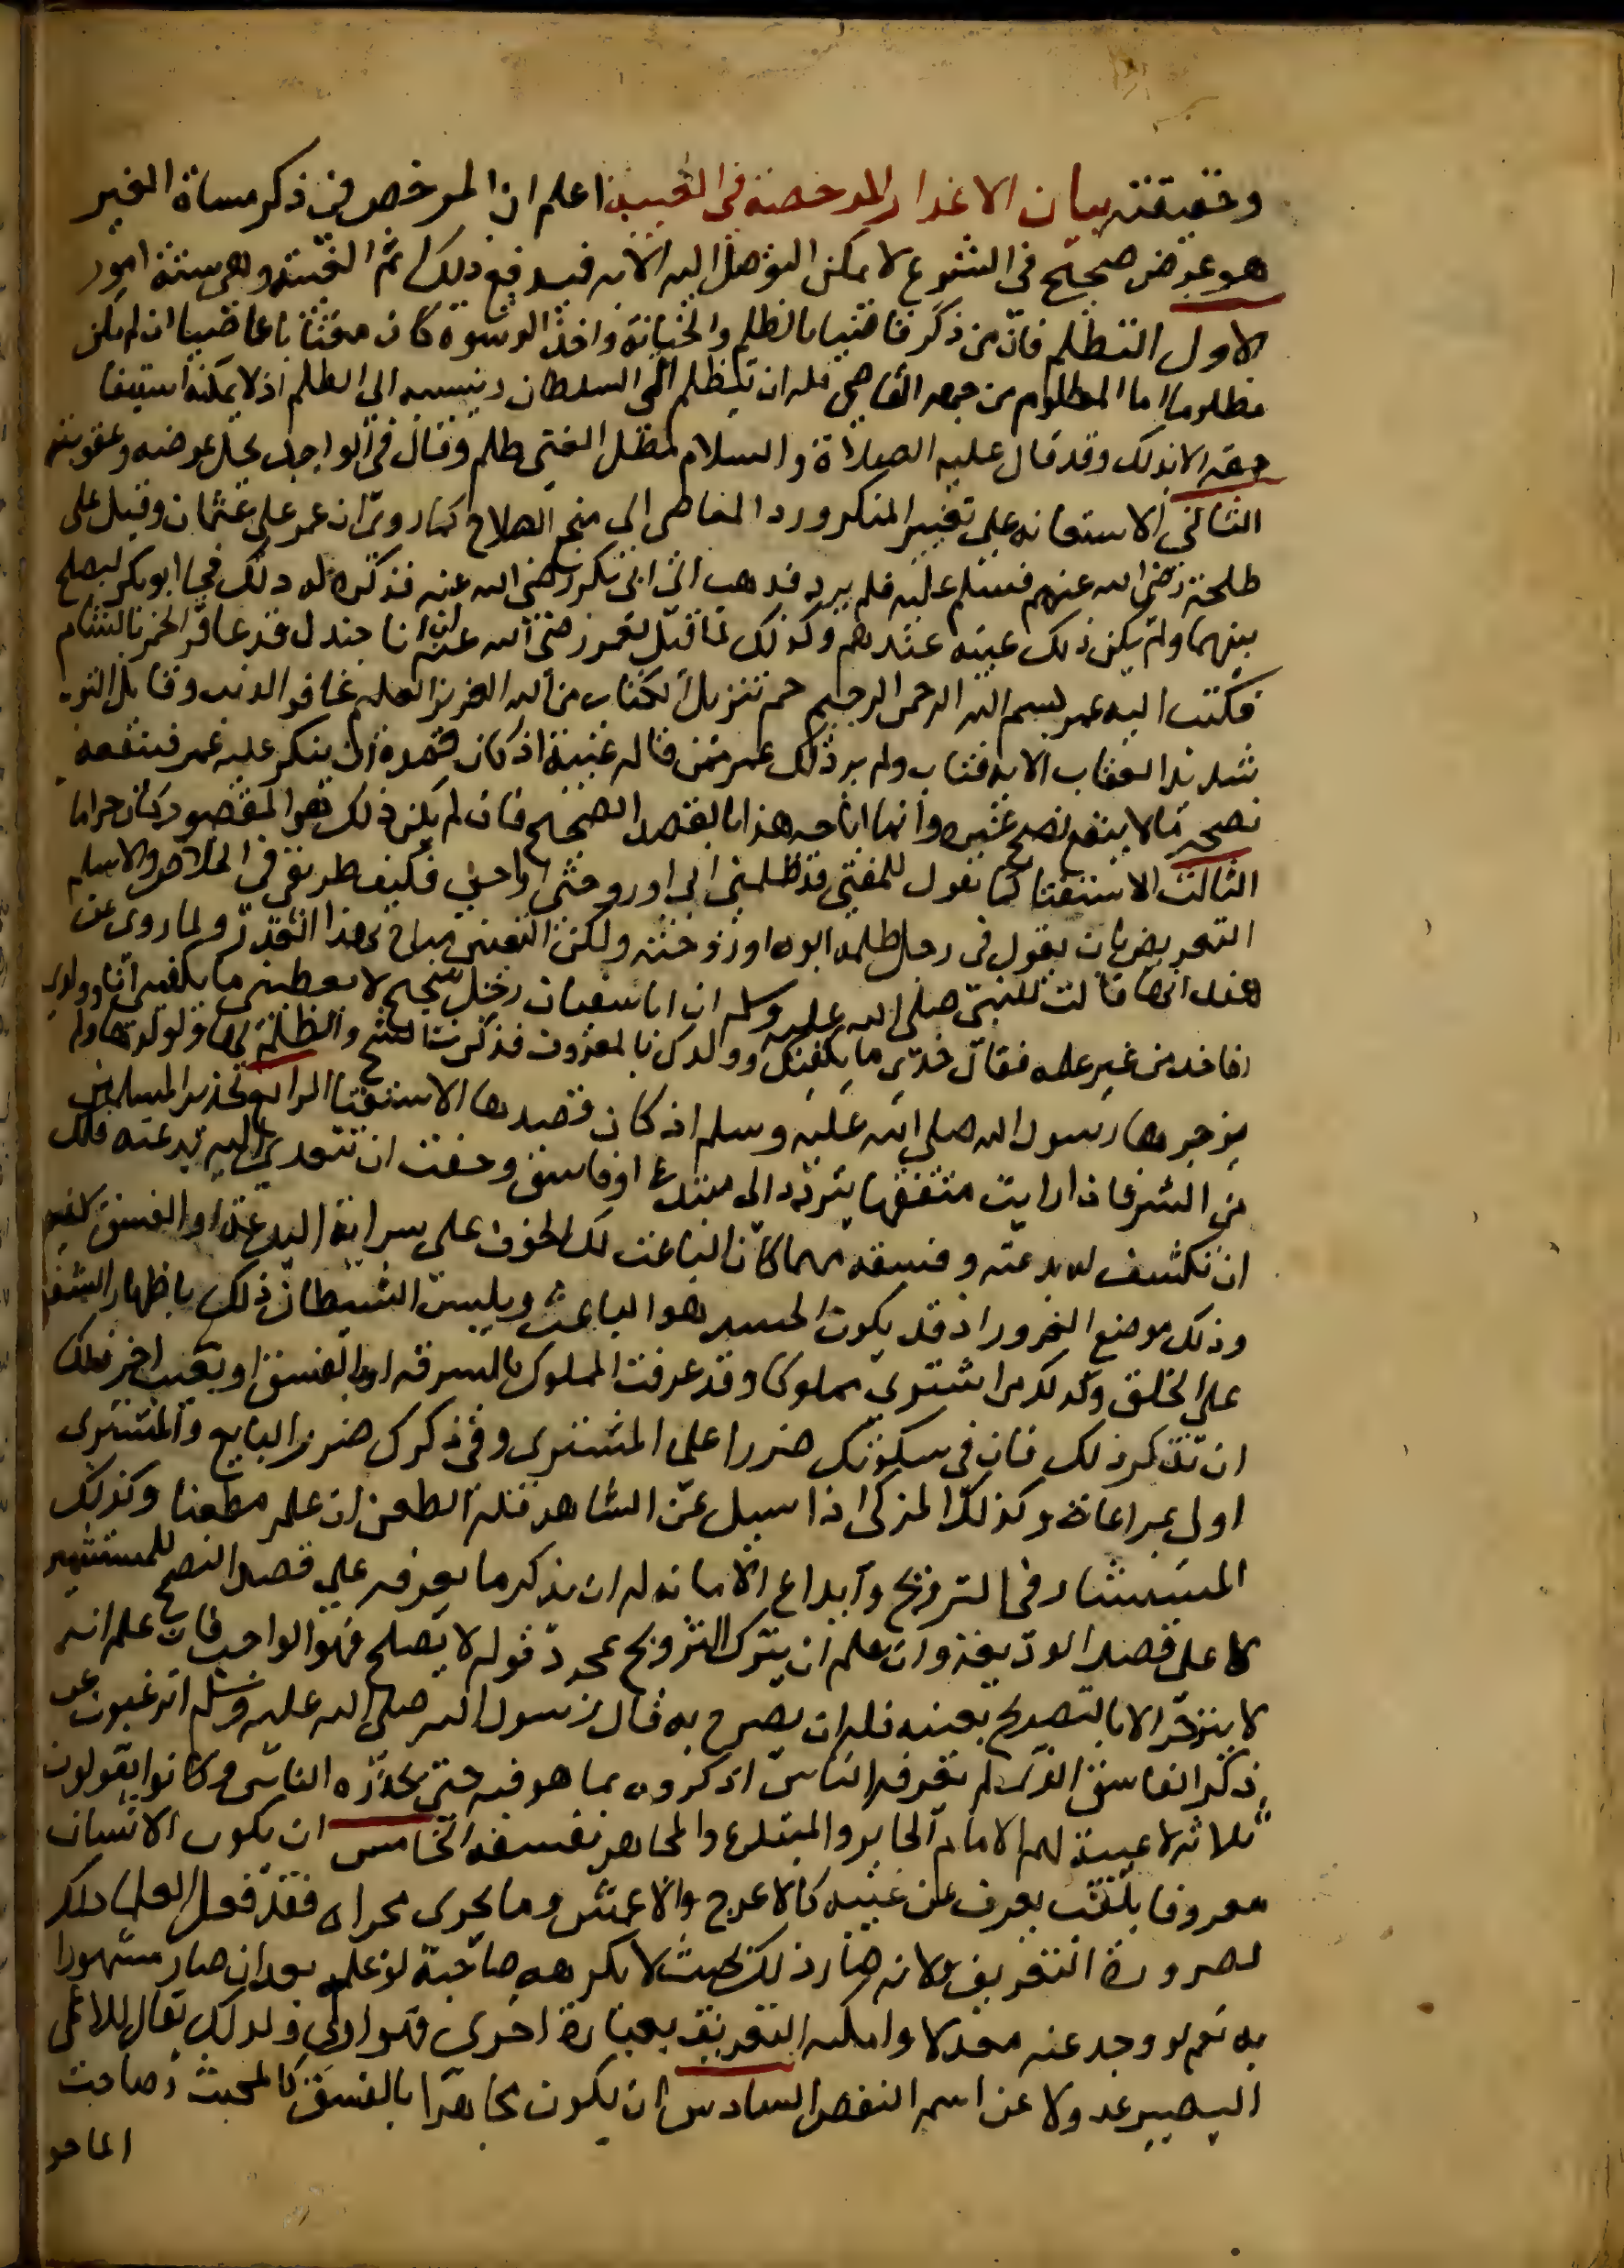 وحقيقته بيان الاعذار المرخصة في الغيبة اعلم ان المرخص في ذكر مساة الغير
هو غرض صحيح في الشرع لا يمكن التوصل اليه الا به فيدفع ذلك اثم الغيبة وهى ستة امور
الاول التظلم فان من ذكر قاضيا بالظلم والخيانة واخذ الرشوة كان مغتابا عاصيا ان لم يكن
مظلوما اما المظلوم من جهه القاضي فله ان يتظلم الى السلطان وينسبه الى الظلم اذ لا يمكنه استيفا
حقه الا بذلك وقد قال عليه الصلاة والسلام مطل الغني ظلم وقال لي الواجد يحل عرضه وعقوبته
الثاني الاستعانه على تغيير المنكر ورد العاصي الى منهج الصلاح كما روي ان عمر على عثمان وقيل على
طلحة رضى الله عنهم فسلم عليه فلم يرد فذهب الى ابى بكر رضى الله عنه فذكر له ذلك فجا ابو بكر ليصلح
بينهما ولم يكن ذلك غيبه عندهم وكذلك لما قيل لعمر رضى الله عنه ان ابا جندل قد عاقر الخمر بالشام
فكتب اليه عمر بسم الله الرحمن الرحيم حم تنزيل الكتاب من الله العزيز العليم غافر الذنب وقابل التوب
شديد العقاب الايه فتاب ولم ير ذلك عمر ممن قاله غيبة اذ كان قصده ان ينكر عليه عمر فينفعه
نصحه ما لا ينفع نصح غيره وانما اباحه هذا بالقصد الصحيح فان لم يكن ذلك هو المقصود كان حراما
الثالث الاستفتا كما تقول للمفتي قد ظلمني ابي او زوجتي او اخي فكيف طريقي في الخلاص والاسلم
التعريض بان يقول في رجل ظلمه ابوه او زوجته ولكن التعيين مباح بهذا القدر ولما روى عن
هند انها قالت للنبي صلى الله عليه وسلم ان ابا سفيان رجل شحيح لا يعطيني ما يكفيني انا وولدى
افاخذ من غير علمه فقال خذي ما يكفيك وولدك بالمعروف فذكرت الشح والظلم لها ولولدها ولم
يزجرها رسول الله صلي الله عليه وسلم اذ كان قصدها الاستفتا الرابع تحذير المسلمين
من الشر فاذا رايت متفقها يتردد الى مبتدع او فاسق وخفت ان تتعدي اليه بدعته فلك
ان تكشف له بدعته وفسقه مهما كان الباعث لك الخوف على سراية البدعة او الفسق لا غير
وذلك موضع الغرور اذ قد يكون الحسد هو الباعث ويلبس الشيطان ذلك باظهار الشفقة
على الخلق وكذلك من اشتري مملوكا وقد عرفت المملوك بالسرقه او بالفسق او بعيب اخر فلك
ان تذكر ذلك فان في سكوتك ضررا على المشترى وفي ذكرك ضرر البايع والمشترى
اولى بمراعاته وكذلك المزكى اذا سيل عن الشاهد فله الطعن ان علم مطعنا وكذلك
المستشار في التزويج وايداع الامانه له ان يذكر ما يعرفه على قصد النصح للمستشير
لا على قصد الوقيعة وان علم ان يترك التزويج بمجرد قوله لا يصلح فهو الواجب فان علم انه
لا ينزجر الا بالتصريح بعيبه فله ان يصرح به قال رسول الله صلى الله عليه وسلم اترغبون عن
ذكر الفاسق الذى لم يعرفه الناس اذكروه بما هو فيه حتى يحذره الناس وكانوا يقولون
ثلاثة لا غيبة لهم الامام الجاير والمبتدع والمجاهر بفسقه الخامس ان يكون الانسان
معروفا بلقب يعرف عن عيبه كالاعرج والاعمش وما يجرى مجراه فقد فعل العلما ذلك
لضرورة التعريف ولانه صار ذلك بحيث لا يكرهه صاحبه لو علم بعد ان صار مشهورا
به نعم لو وجد عنه معدلا وامكنه التعريف بعبارة اخرى فهو اولى ولذلك يقال للاعمى
البصير عدولا عن اسم النقص السادس ان يكون مجاهرا بالفسق كالمخنث وصاحب
الماخو